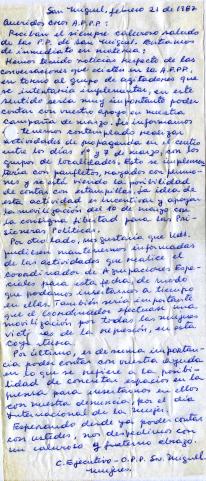 San Miguel, febrero 21 de 1987
Queridos Cros A.P.P.P.:
Reciban el siempre caluroso saludo
de las P.P. de San Miguel. Entramos
de inmediato en materia:
Hemos tenido noticias respecto de las
conversaciones que existen en la A.P.P.P.,
en torno al grupo de agitadoras que
se intentaría implementar, en este
sentido sería muy importante poder
contar con vuestro apoyo en nuestra
campaña de marzo. Les informamos
tenemos contemplado realizar
actividades de propaganda en el centro
entre los días 1º y 7 de marzo, con los
grupos de localidades. Esto se implemen-
taría con panfletos, rayados con plumo-
nes y se está viendo la posibilidad
de contar con estampillas. La idea de
esta actividad es incentivar y apoyar
la movilización del 10 de marzo con
la consigna Libertad para las Pri-
sioneras Políticas.
Por otro lado, nos gustaría que Uds.
pudiesen mantenernos informadas
de las actividades que realice el
coordinador de Agrupaciones Espe-
ciales para esta fecha, de modo
que podamos insertarnos a tiempo
en ellas. También sería importante
que el Coordinador efectuase una
movilización por todas las mujeres
víctimas de la represión, en esta
coyuntura.
Por último, es de suma importan-
cia poder contar con vuestra ayuda
en lo que se refiere a la posibi-
lidad de concertar espacios en la
prensa para insertarnos en ellos
con nuestra denuncia, por el día
Internacional de la Mujer.
Esperando desde ya poder contar
con ustedes, nos despedimos con
un caluroso y fraterno abrazo.
C. Ejecutivo - O.P.P. Sn. Miguel
Mujeres.